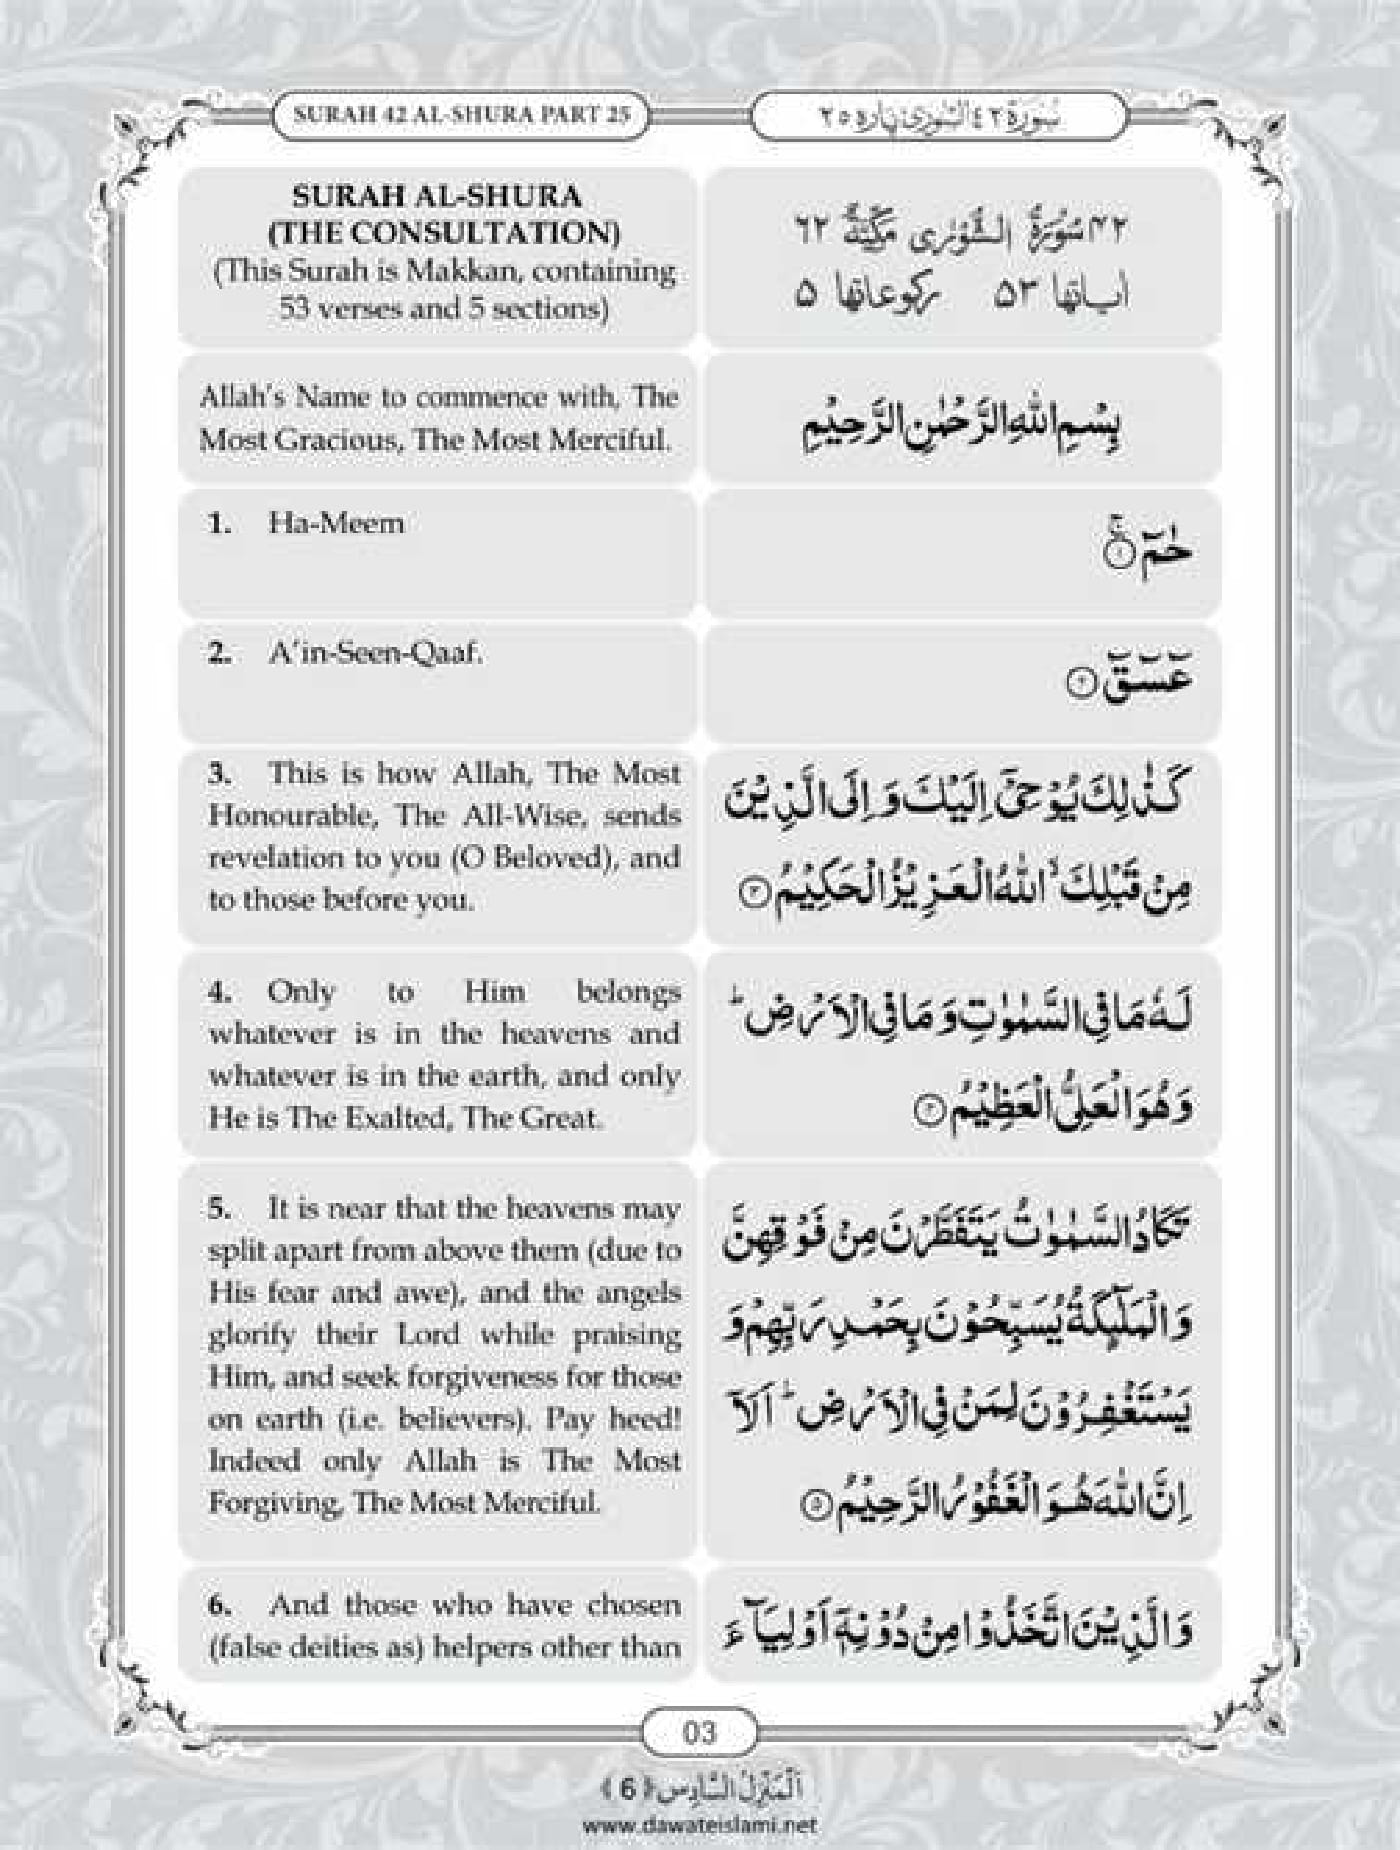 SURAH 42 AL-SHURA PART 25
سُوْرَةُ ٤٢ الشُّوْرٰی پارہ ٢٥
SURAH AL-SHURA
(THE CONSULTATION)
(This Surah is Makkan, containing
53 verses and 5 sections)
٤٢ سُوْرَةُ الشُّوْرٰی مَكِّيَّةٌ ٦٢
اٰیاتها ۵۳ ركوعاتها ۵
Allah's Name to commence with, The
Most Gracious, The Most Merciful.
بِسْمِ اللّٰهِ الرَّحْمٰنِ الرَّحِيْمِ
1. Ha-Meem
حٰمٓ ۚ﴿۱﴾
2. A'in-Seen-Qaaf.
عٓسٓقٓ ﴿۲﴾
3. This is how Allah, The Most
Honourable, The All-Wise, sends
revelation to you (O Beloved), and
to those before you.
كَذٰلِكَ يُوْحِیْۤ اِلَيْكَ وَ اِلَى الَّذِيْنَ
مِنْ قَبْلِكَ ۙ اللّٰهُ الْعَزِيْزُ الْحَكِيْمُ ﴿۳﴾
4. Only to Him belongs
whatever is in the heavens and
whatever is in the earth, and only
He is The Exalted, The Great.
لَهٗ مَا فِی السَّمٰوٰتِ وَ مَا فِی الْاَرْضِ ؕ
وَ هُوَ الْعَلِیُّ الْعَظِيْمُ ﴿۴﴾
5. It is near that the heavens may
split apart from above them (due to
His fear and awe), and the angels
glorify their Lord while praising
Him, and seek forgiveness for those
on earth (i.e. believers). Pay heed!
Indeed only Allah is The Most
Forgiving, The Most Merciful.
تَكَادُ السَّمٰوٰتُ يَتَفَطَّرْنَ مِنْ فَوْقِهِنَّ
وَ الْمَلٰٓئِكَةُ يُسَبِّحُوْنَ بِحَمْدِ رَبِّهِمْ وَ
يَسْتَغْفِرُوْنَ لِمَنْ فِی الْاَرْضِ ؕ اَلَاۤ
اِنَّ اللّٰهَ هُوَ الْغَفُوْرُ الرَّحِيْمُ ﴿۵﴾
6. And those who have chosen
(false deities as) helpers other than
وَ الَّذِيْنَ اتَّخَذُوْا مِنْ دُوْنِهٖۤ اَوْلِيَآءَ
03
اَلْمَنْزِلُ السَّادِس ﴿6﴾
www.dawateislami.net